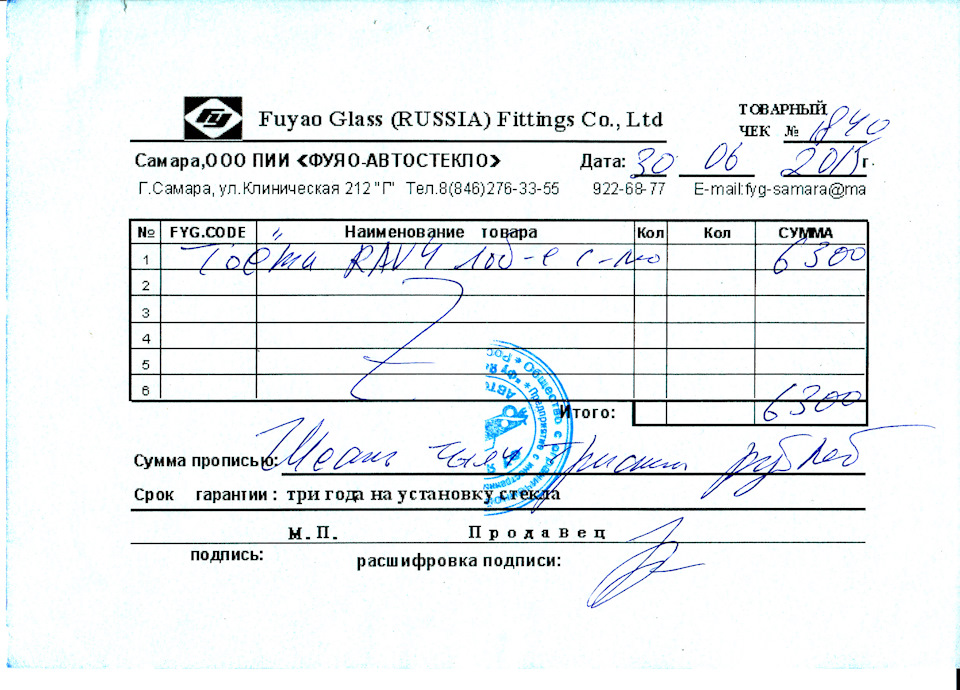 Fuyao Glass (RUSSIA) Fittings Co., Ltd
ТОВАРНЫЙ
ЧЕК № 1840
Самара,ООО ПИИ «ФУЯО-АВТОСТЕКЛО» Дата: 30 06 2015 г.
Г.Самара, ул.Клиническая 212 "Г" Тел.8(846)276-33-55 922-68-77 E-mail:fyg-samara@ma
№ FYG.CODE Наименование товара Кол Кол СУММА
1 Тоёта RAV4 лоб-е с-ло 6300
2
3
4
5
6
Итого: 6300
Сумма прописью: Шесть тысяч триста рублей
Срок гарантии : три года на установку стекла
М.П. Продавец
подпись: расшифровка подписи:
Общество с ограниченной
Предприятие с иностранны